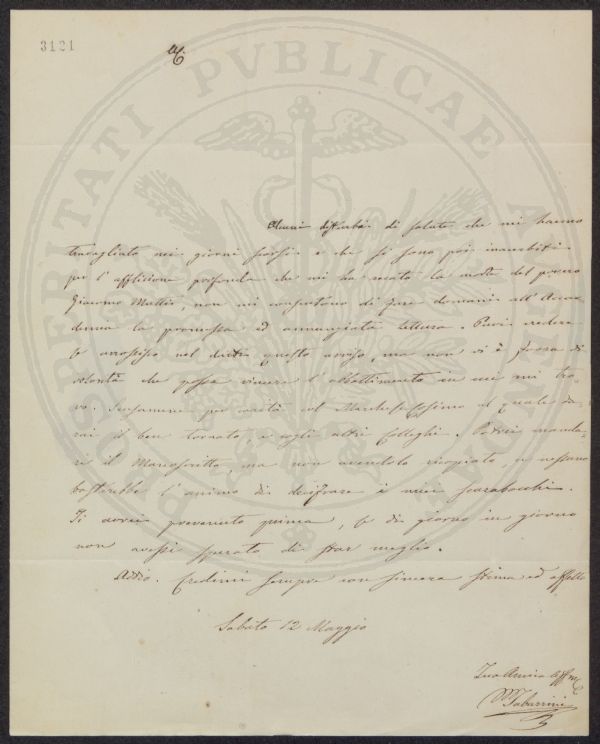 3121
PROSPERITATI PVBLICAE AVGENDAE
C.
Alcuni disturbi di salute che mi hanno
travagliato nei giorni scorsi e che si sono poi inacerbiti
per l'afflizione profonda che mi ha recato la morte del povero
Giacomo Mattei, non mi consentono di fare domani all'Acca-
demia la promessa ed annunziata lettura. Puoi credere
se arrossisco nel darti questo avviso, ma non vi è forza di
volontà che possa vincere l'abbattimento in cui mi tro-
vo. Scusami per carità col al quale da-
rai il ben tornato, e cogli altri Colleghi. Potrei manda-
re il Manoscritto, ma non avendolo ricopiato, a nessuno
basterebbe l'animo di decifrare i miei scarabocchi.
Ti avrei prevenuto prima, se di giorno in giorno
non avessi sperato di star meglio.
Addio. Credimi sempre con sincera stima ed affetto
Sabato 12 Maggio
Tuo Amico Affmo
Tabarrini